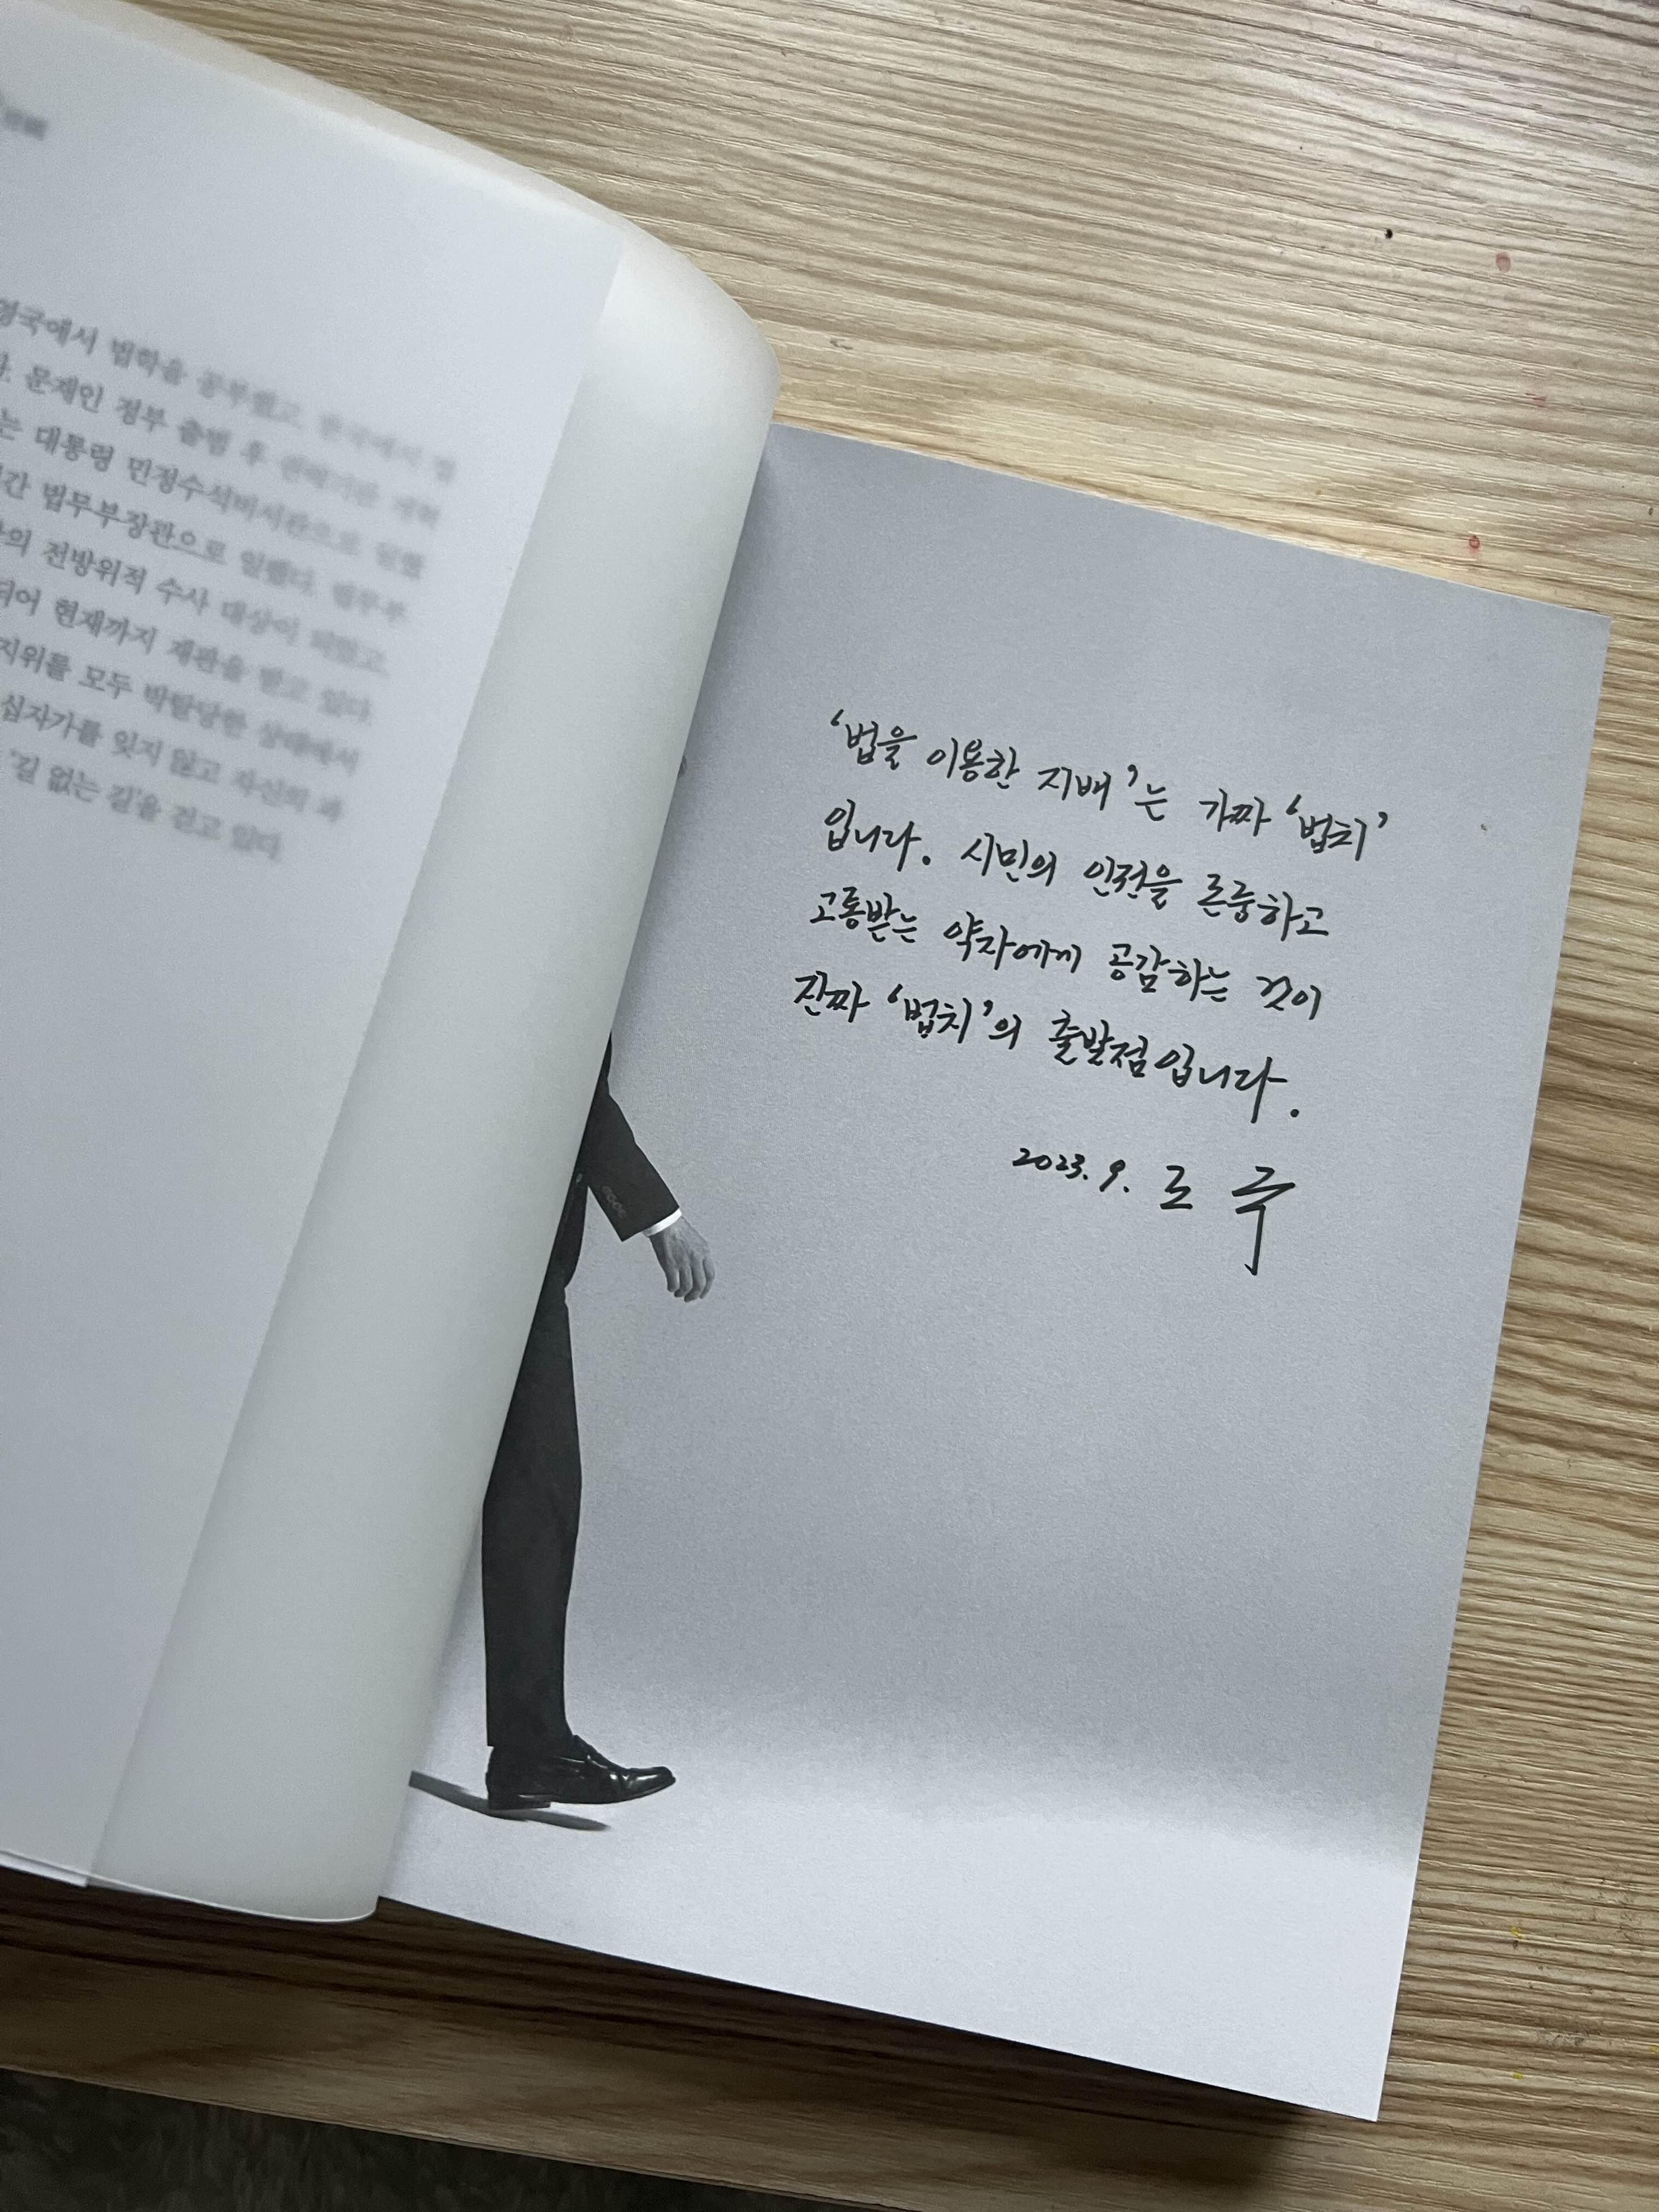 영국에서 법학을 공부했고, 한국에서 법
문재인 정부 출범 후 권력기관 개혁
는 대통령 민정수석비서관으로 일했
간 법무부장관으로 일했다. 법무부
의 전방위적 수사 대상이 되었고,
되어 현재까지 재판을 받고 있다.
지위를 모두 박탈당한 상태에서
십자가를 잊지 않고 자신의 과
'길 없는 길'을 걷고 있다.
‘법을 이용한 지배’는 가짜 ‘법치’
입니다. 시민의 인권을 존중하고
고통받는 약자에게 공감하는 것이
진짜 ‘법치’의 출발점입니다.
2023. 9. 조 국